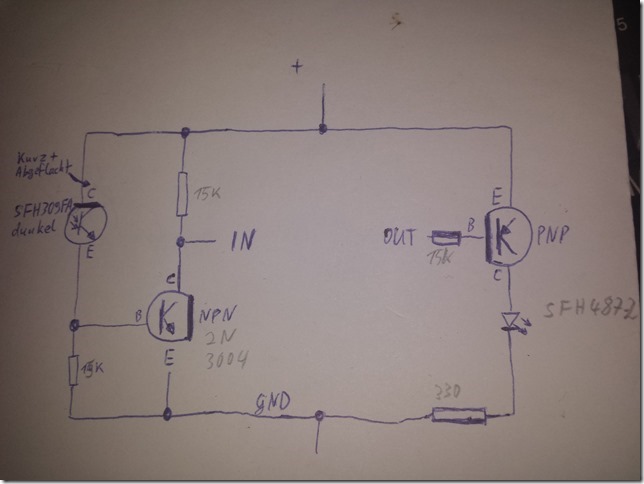 5
+
Kurz +
Abgeflacht
C
SFH309FA
dunkel
E
15K
IN
C
B
NPN
2N
3004
E
15K
GND
E
OUT
B
PNP
15K
C
SFH4872
330